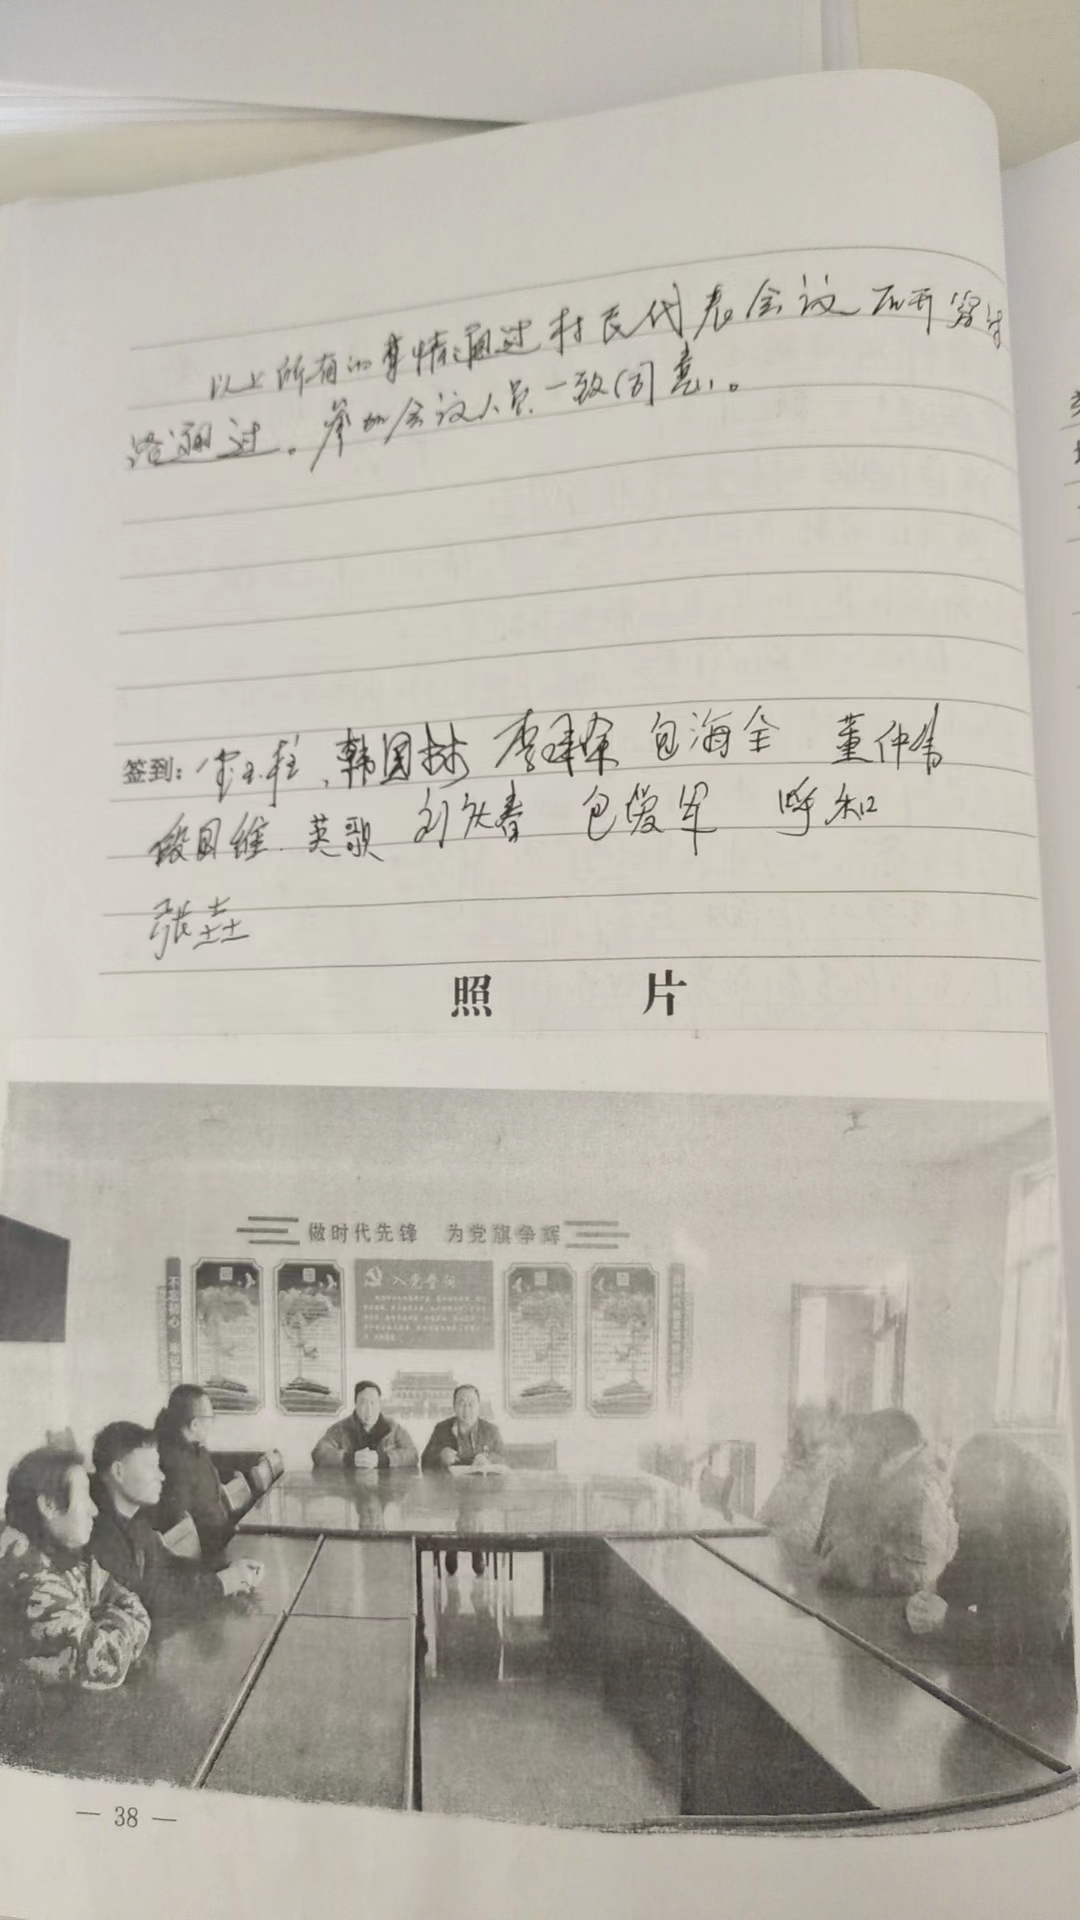 以上所有的事情通过村民代表会议研究讨
论通过。参加会议人员一致同意。
签到: 韩国林 李 包海全 董仲
段国维 英歌 刘庆春 包爱军 呼和
张垚
照 片
做时代先锋 为党旗争辉
入党誓词
不忘初心 牢记
— 38 —